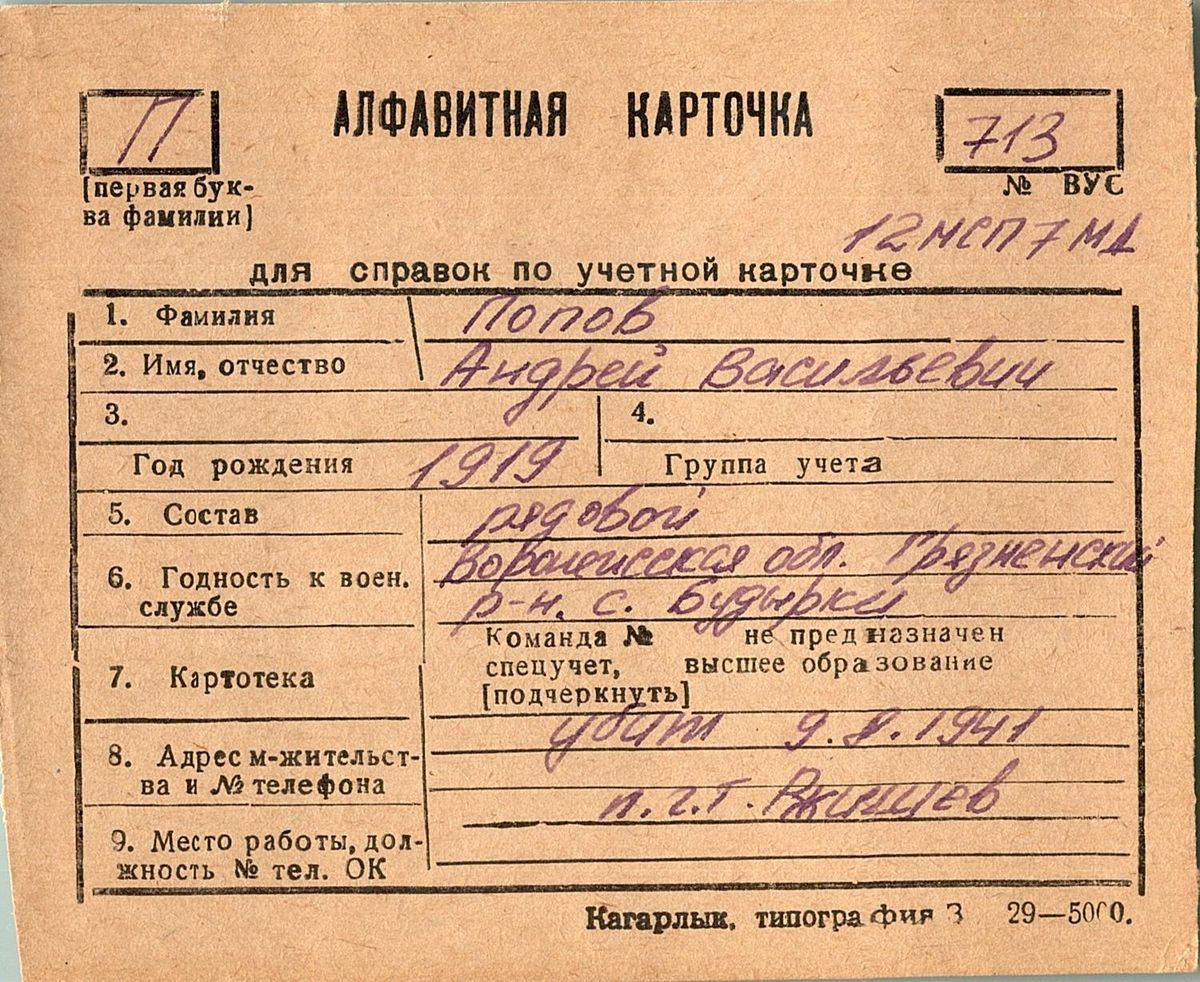 П АЛФАВИТНАЯ КАРТОЧКА 713
[первая бук-
ва фамилии]
№ ВУС
12 МСП 7 МД
для справок по учетной карточке
1. Фамилия Попов
2. Имя, отчество Андрей Васильевич
3. 4.
Год рождения 1919 Группа учета
5. Состав рядовой
6. Годность к воен. службе Воронежская обл. Грязненский
р-н. с. Будырки
Команда № не предназначен
спецучет, высшее образование
[подчеркнуть]
7. Картотека
убит 9.8.1941
8. Адрес м-жительст-
ва и № телефона
п.г.т. Ржищев
9. Место работы, дол-
жность № тел. ОК
Кагарлык, типография З 29—5000.